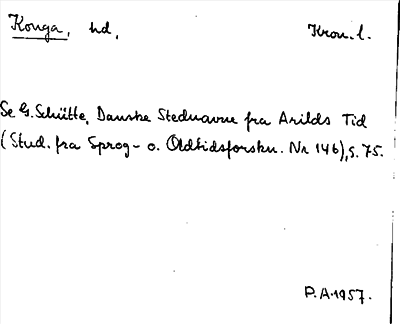 Konga, hd,
Kron. l.
Se G. Schütte, Danske Stednavne fra Arilds Tid
(Stud. fra Sprog- o. Oldtidsforskn. Nr 146), s. 75.
P. A. 1957.